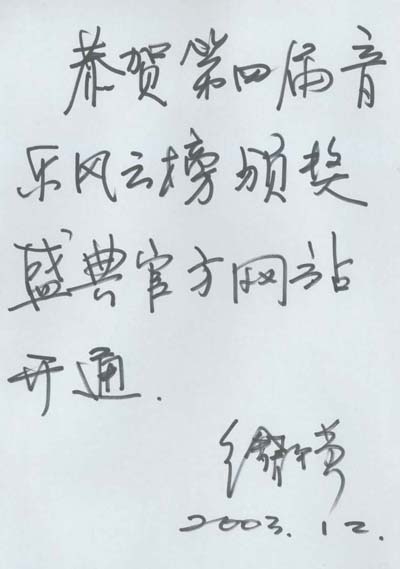 恭贺第四届音
乐风云榜颁奖
盛典官方网站
开通.
2003.12.